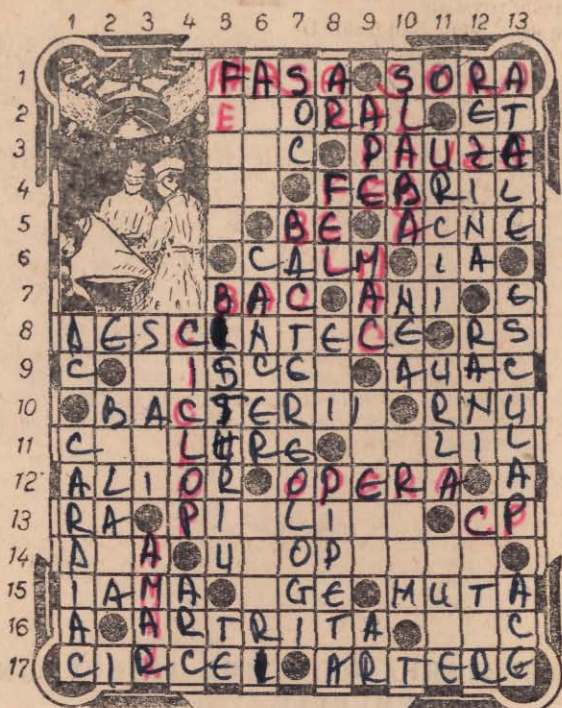 1 2 3 4 5 6 7 8 9 10 11 12 13
1 FASA SORA
2 E ORAL ET
3 C PAUZA
4 FEBRIL
5 BE ACNE
6 CALM IA
7 BAC ANI E
8 DESCINTECE RS
9 C ISCE AUAC
10 BACTERII RNU
11 C LURE LIL
12 ALIOR OPERA A
13 RA PI LI CP
14 D A U OP
15 IAMA GE MUTA
16 A ARTRITA C
17 CIRCEI ARTERE